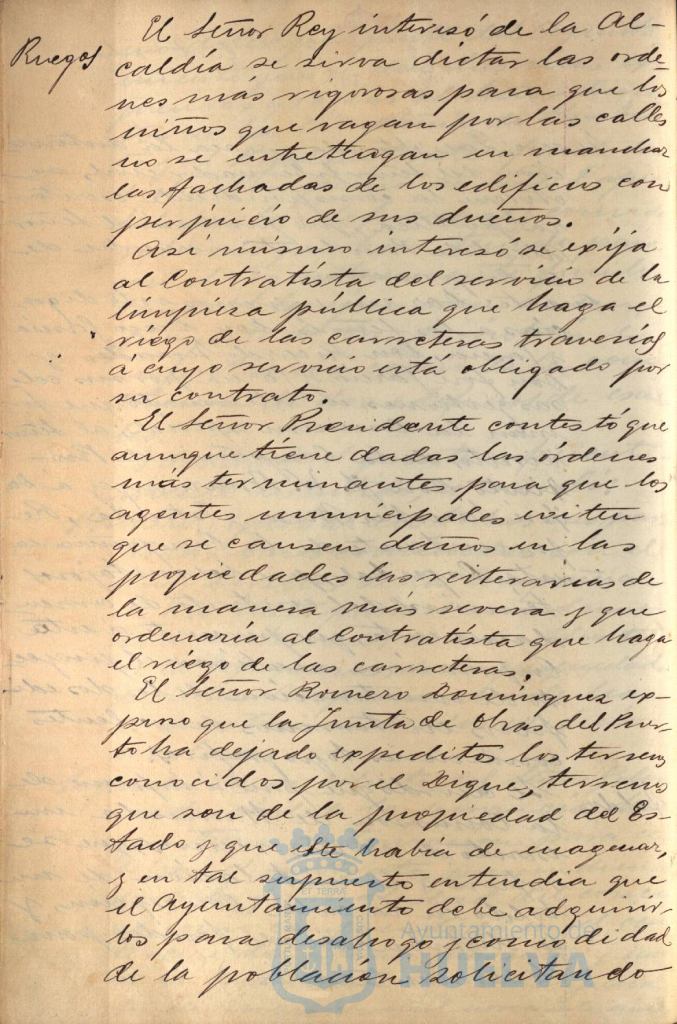 Ruegos
El Señor Rey interesó de la Al-
caldía se sirva dictar las orde-
nes más rigorosas para que los
niños que vagan por las calles
no se entretengan en manchar
las fachadas de los edificios con
perjuicio de sus dueños.
Asi mismo interesó se exija
al Contratista del servicio de la
limpieza pública que haga el
riego de las carreteras travesías
á cuyo servicio está obligado por
su contrato.
El Señor Presidente contestó que
aunque tiene dadas las órdenes
más terminantes para que los
agentes municipales eviten
que se causen daños en las
propiedades las reiterarias de
la manera más severa y que
ordenaría al Contratista que haga
el riego de las carreteras.
El Señor Romero Dominguez ex-
puso que la Junta de Obras del Puer-
to ha dejado expeditos los terrenos
conocidos por el Dique, terrenos
que son de la propiedad del Es-
tado y que este había de enagenar,
y en tal supuesto entendia que
el Ayuntamiento debe adquirir-
los para desahogo y comodidad
de la población solicitando
Ayuntamiento de
HUELVA